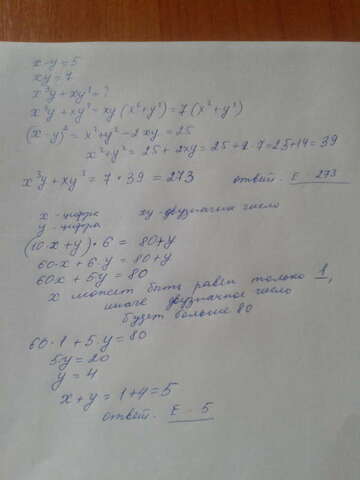 x-y=5
xy=7
x³y+xy³=?
x³y+xy³=xy(x²+y²)=7(x²+y²)
(x-y)²=x²+y²-2xy=25
x²+y²=25+2xy=25+2·7=25+14=39
x³y+xy³=7·39=273 ответ. E - 273
x - цифра xy - двузначное число
y - цифра
(10·x+y)·6=80+y
60·x+6·y=80+y
60x+5y=80
x может быть равен только 1,
иначе двузначное число
будет больше 80
60·1+5·y=80
5y=20
y=4
x+y=1+4=5
ответ. E - 5